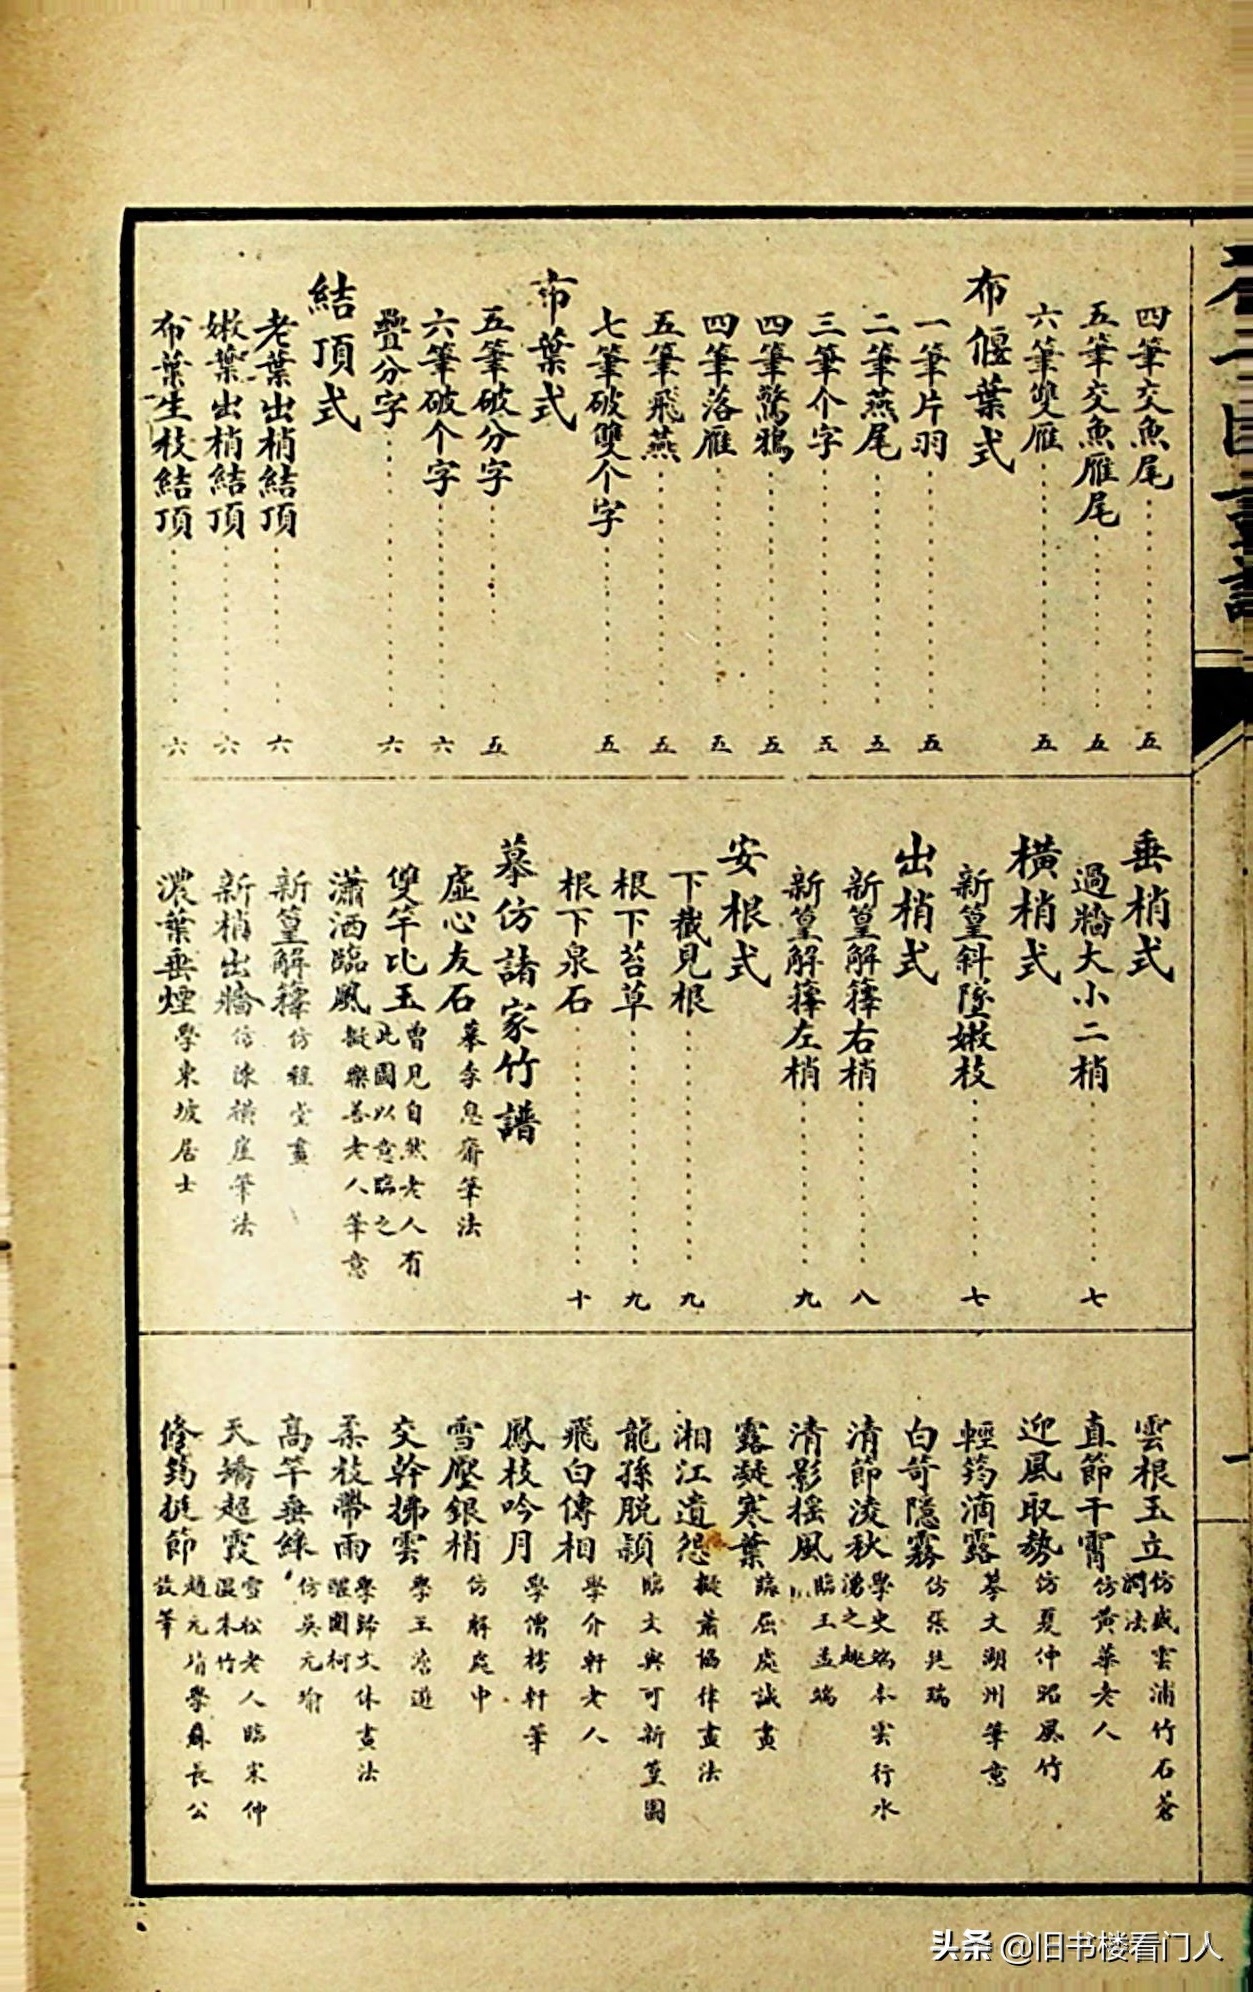 四筆交魚尾 五
五筆交魚雁尾 五
六筆雙雁 五
布偃葉式
一筆片羽 五
二筆燕尾 五
三筆个字 五
四筆驚鴉 五
四筆落雁 五
五筆飛燕 五
七筆破雙个字 五
布葉式
五筆破分字 五
六筆破个字 六
疊分字 六
結頂式
老葉出梢結頂 六
嫩葉出梢結頂 六
布葉生枝結頂 六
垂梢式
過牆大小二梢 七
橫梢式
新篁斜墜嫩枝 七
出梢式
新篁解籜右梢 八
新篁解籜左梢 九
安根式
下截見根 九
根下苔草 九
根下泉石 十
摹仿諸家竹譜
虛心友石 摹李息齋筆法
雙竿比玉 曾見自然老人有此圖以意臨之
瀟洒臨風 擬樂善老人筆意
新篁解籜 仿程堂畫
新梢出牆 仿陳橫崖筆法
濃葉垂煙 學東坡居士
雲根玉立 仿盛雲浦竹石蒼潤法
直節干霄 仿黃華老人
迎風取勢 仿夏仲昭風竹
輕筠滴露 摹文湖州筆意
白笴隱霧 仿張芝瑞
清節凌秋 學史端本雲行水湧之趣
清影搖風 臨王孟端
露凝寒葉 臨屈處誠畫
湘江遺怨 擬蕭協律畫法
龍孫脫穎 臨文與可新篁圖
飛白傳相 學介軒老人
鳳枝吟月 學僧樗軒筆
雪壓銀梢 仿解處中
交幹拂雲 學王澹游
柔枝帶雨 學歸文休畫法
高竿垂綠 仿吳元瑜
天矯超霞 雪松老人臨宋仲溫朱竹
修筠挺節 趙元靖學蘇長公故筆
頭条 @旧书楼看门人